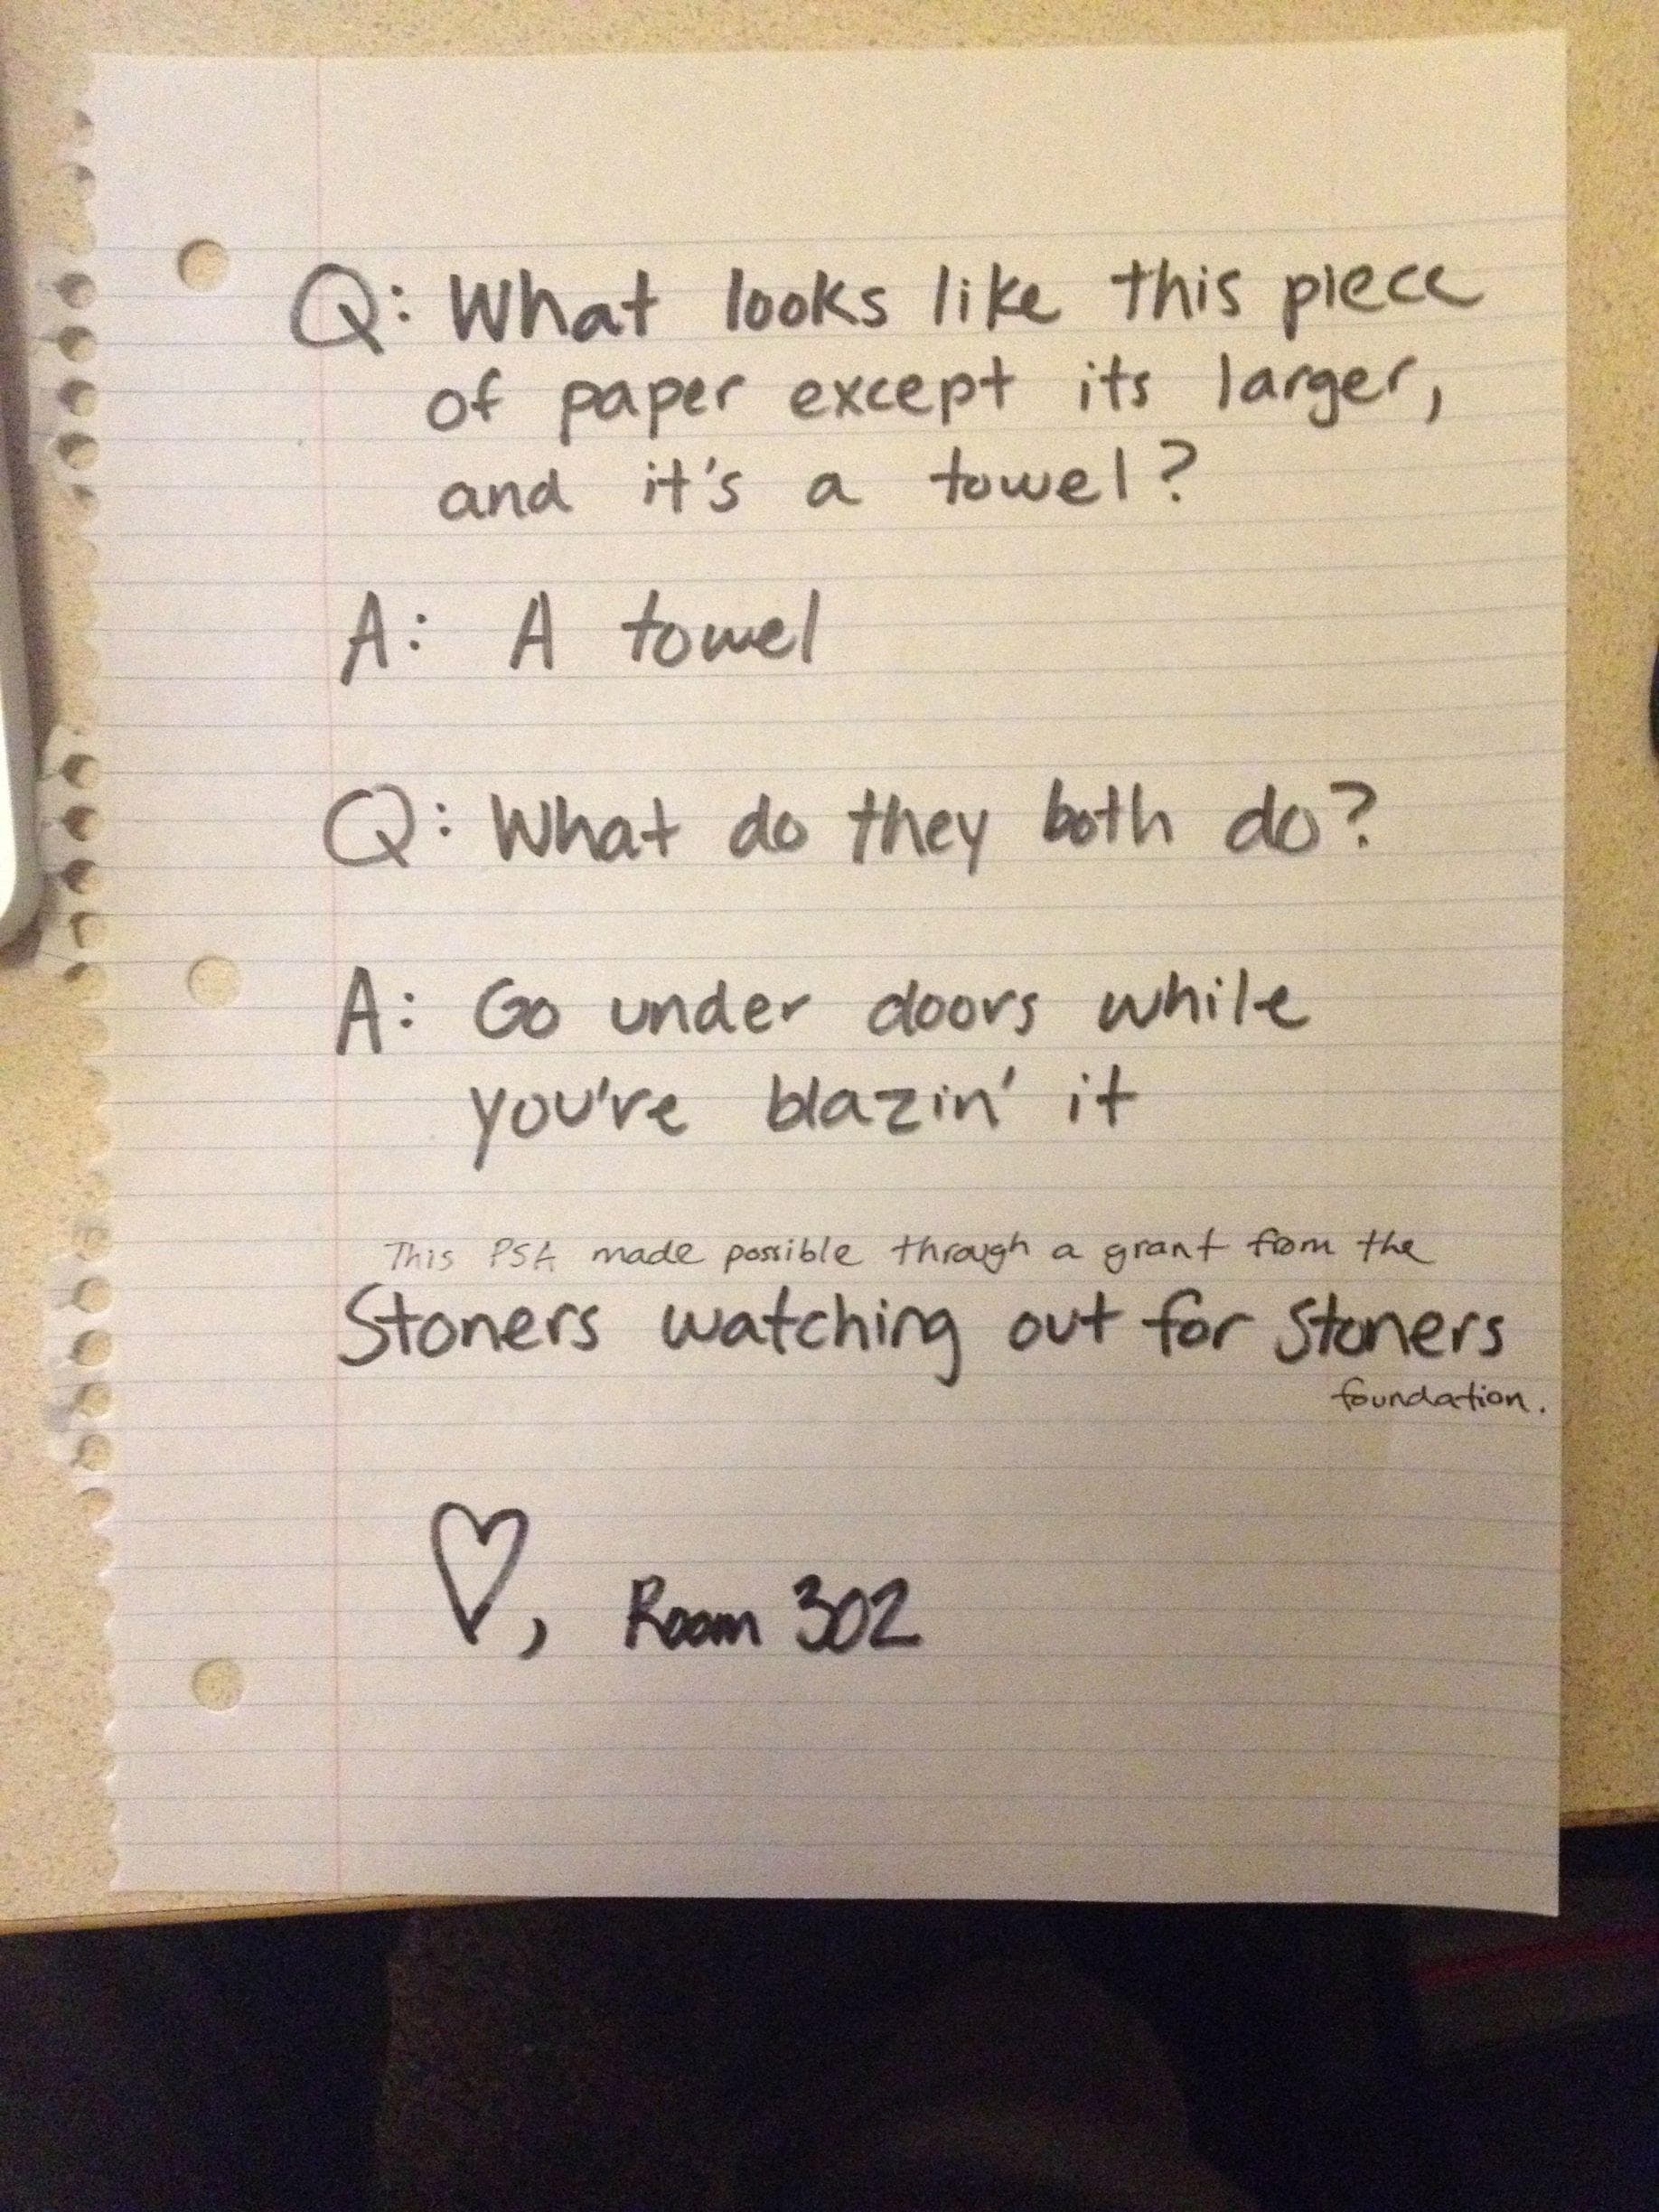 Q: What looks like this piece
of paper except its larger,
and it's a towel?
A: A towel
Q: What do they both do?
A: Go under doors while
you're blazin' it
This PSA made possible through a grant from the
Stoners watching out for Stoners
foundation.
♡, Room 302